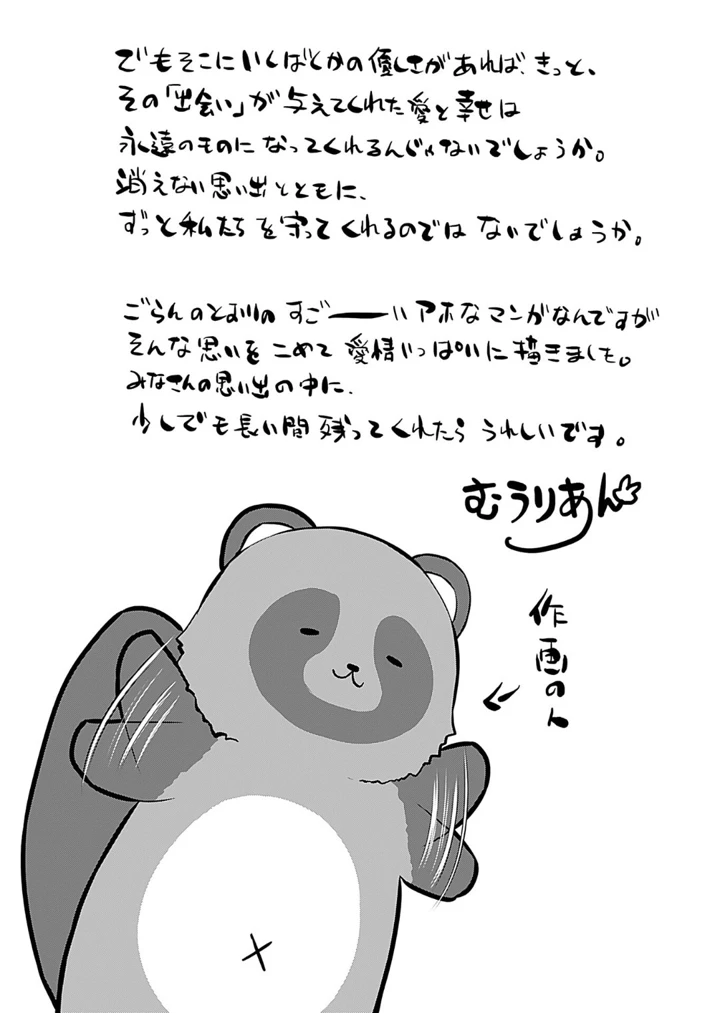 でもそこにいくばくかの優しさがあれば、きっと、
その「出会い」が与えてくれた愛と幸せは
永遠のものになってくれるんじゃないでしょうか。
消えない思い出とともに、
ずっと私たちを守ってくれるのではないでしょうか。
ごらんのとおりのすごーーーいアホなマンガなんですが
そんな思いをこめて愛情いっぱいに描きました。
みなさんの思い出の中に、
少しでも長い間残ってくれたらうれしいです。
むうりあん
作画の人